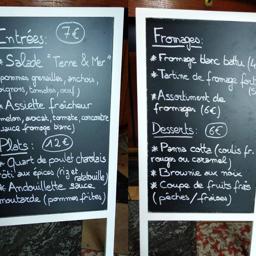 Entrées: 7€
* Salade "Terre & Mer"
pommes grenailles, anchois,
oignons, tomates, oeuf)
* Assiette fraîcheur
melon, avocat, tomate, concombre
sauce fromage blanc)
Plats: 12€
* Quart de poulet charolais
rôti aux épices (riz et
ratatouille)
* Andouillette sauce
moutarde (pommes frites)
Fromages:
* Fromage blanc battu (4
* Tartine de fromage
(5
* Assortiment de
fromages (6€)
Desserts: 6€
* Panna cotta (coulis fr.
rouges ou caramel)
* Brownie aux noix
* Coupe de fruits frais
(pêches / fraises)